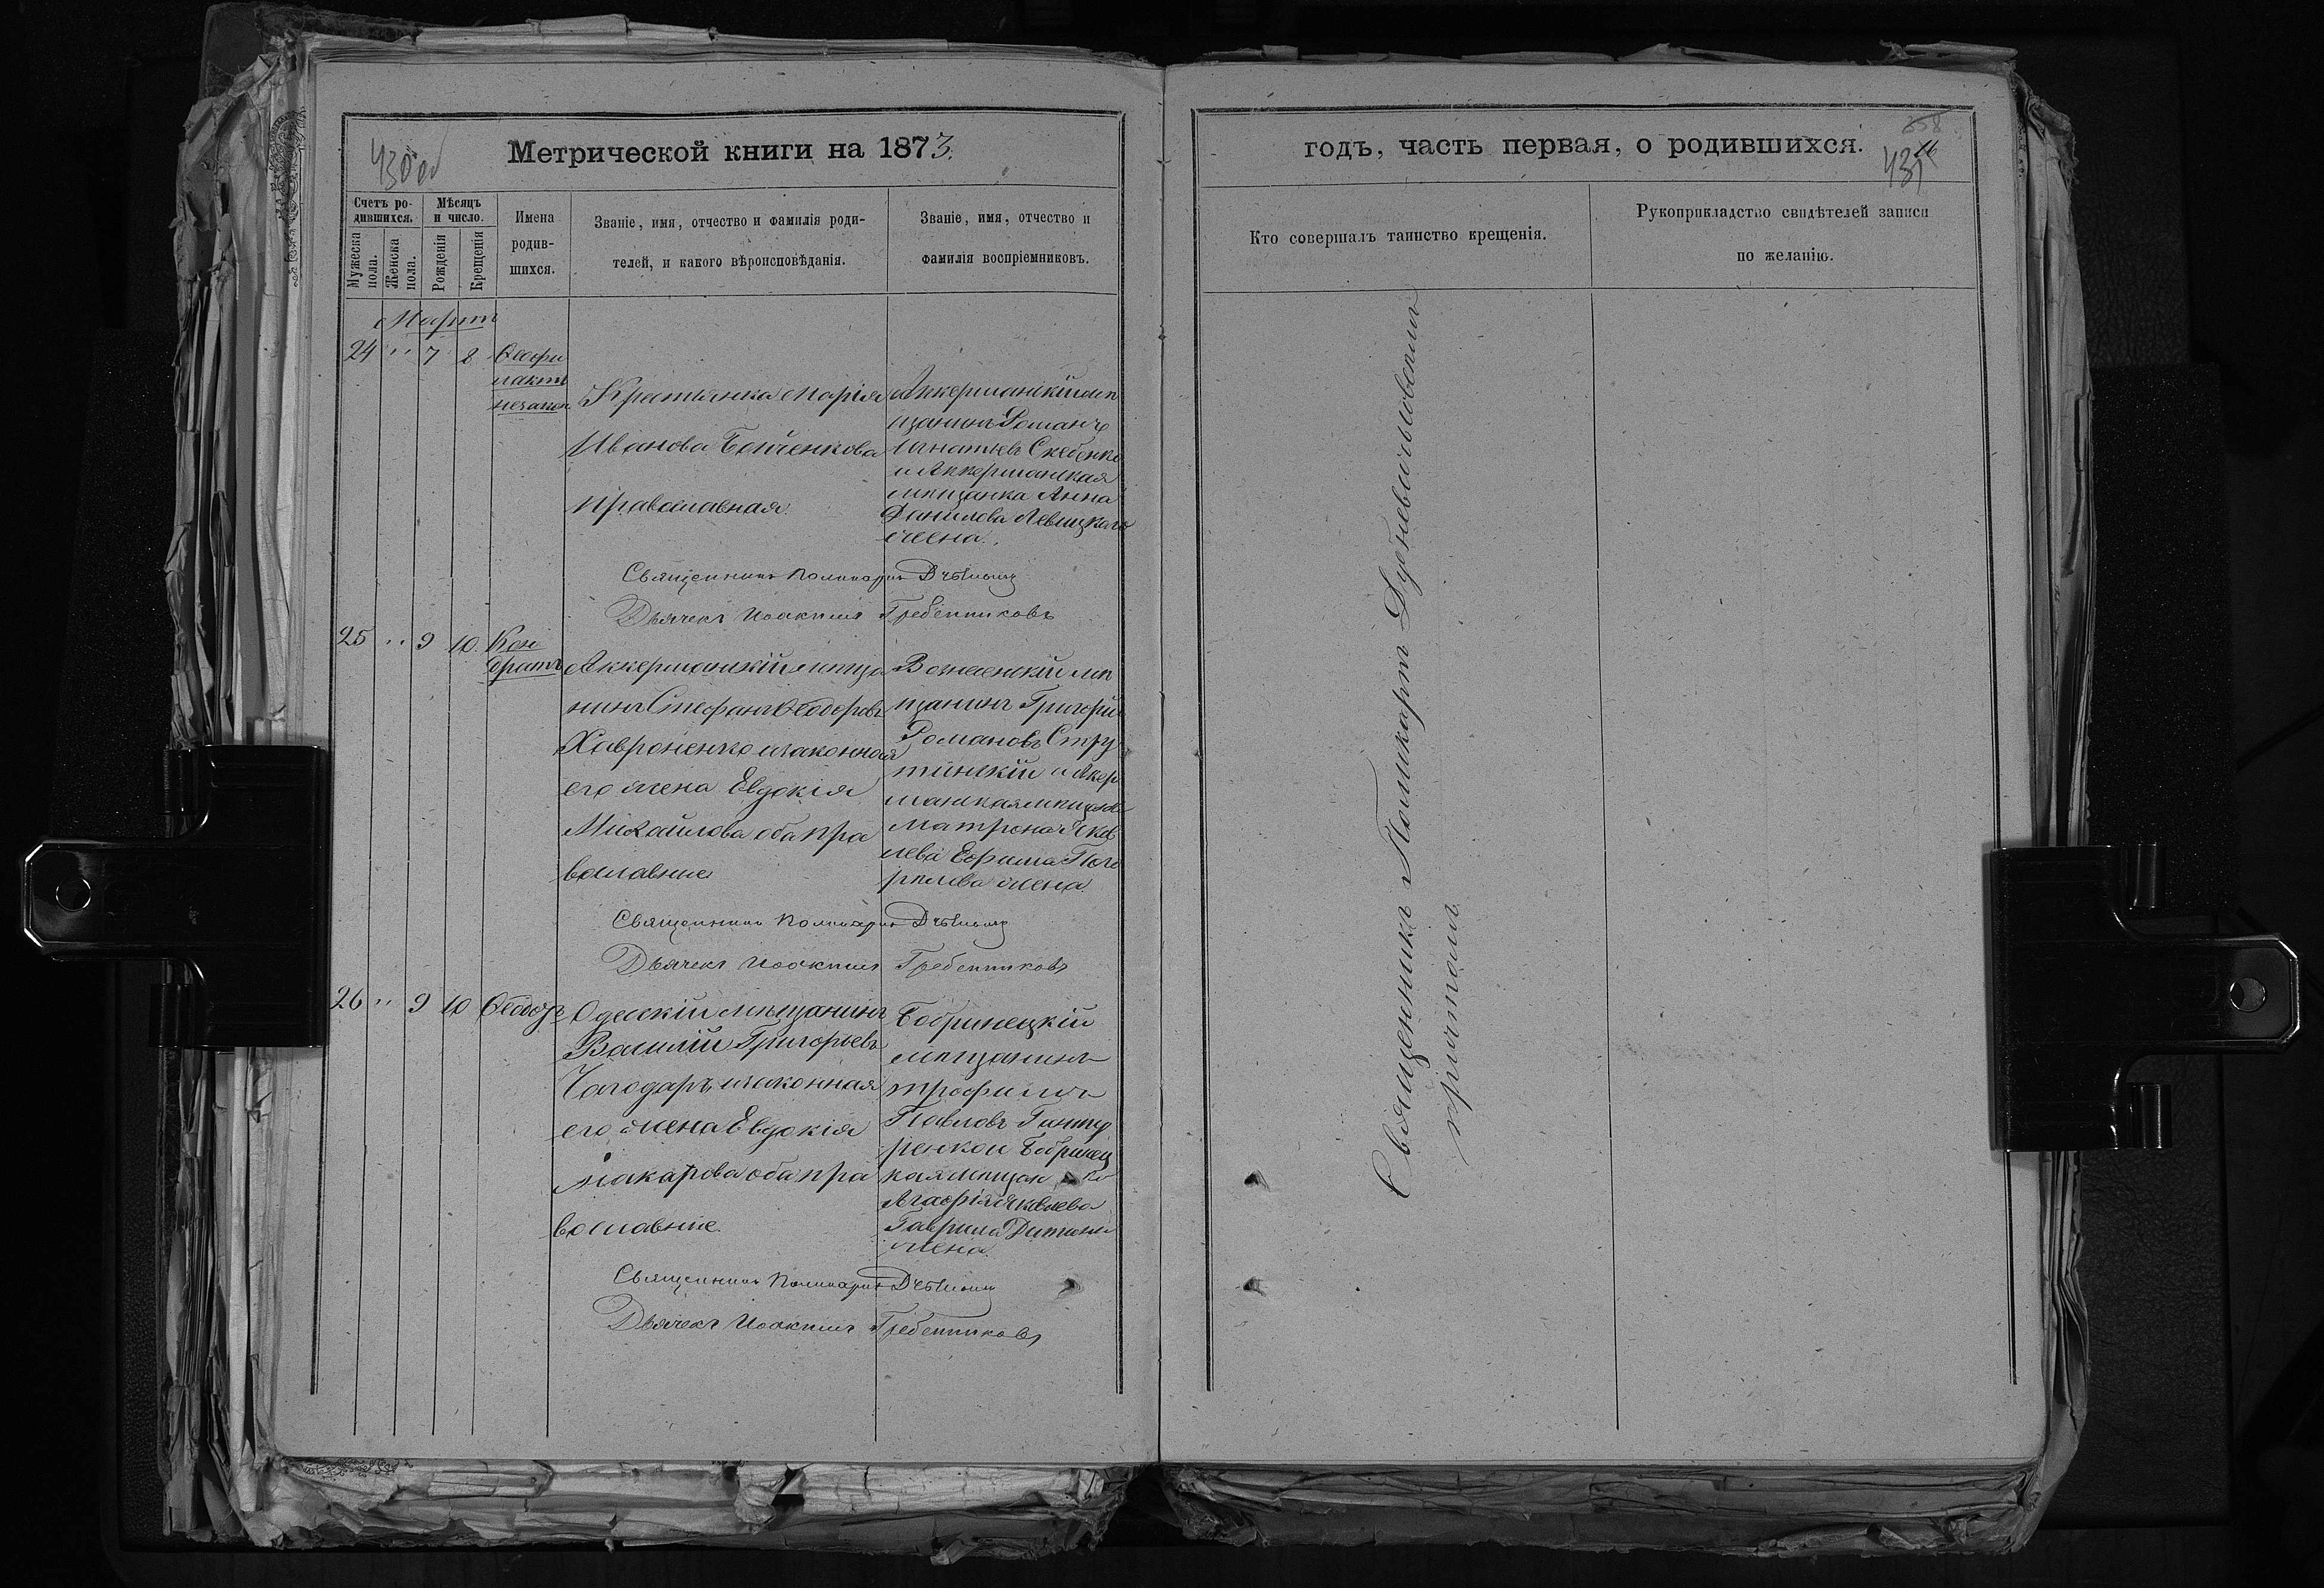 430 об
Метрической книги на 1873.
Счетъ ро-
дившихся.
Мѣсяцъ
и число.
Мужеска
пола.
Женска
пола.
Рожденія
Крещенія
Имена
родив-
шихся.
Званіе, имя, отчество и фамилія роди-
телей, и какого вѣроисповѣданія.
Званіе, имя, отчество и
фамилія воспріемниковъ.
Мартъ
24 " 7 8 Ѳеофи
лактъ
незакон
Крестьянка Марія
Иванова
православная.
Аккерманскій мѣ
щанинъ Романъ
Игнатьевъ
и Аккерманская
мѣщанка Анна
Данилова Левицкаго
жена.
Священникъ Поликарпъ
Дьячекъ Іоакимъ Гребенниковъ
25 " 9 10 Кон
дратъ
Аккерманскій мѣща
нинъ Стефанъ Ѳеодоровъ
Хавроненко и законная
его жена Евдокія
Михайлова оба пра
вославные
Вознесенскій мѣ
щанинъ Григорій
Романовъ Стру
тинскій и Акер
манская мѣщанка
Матрона Яков
лева Ефима Пого
рѣлова жена.
Священникъ Поликарпъ
Дьячекъ Іоакимъ Гребенниковъ
26 " 9 10 Ѳеодоръ
Одесскій мѣщанинъ
Василій Григорьевъ
Чагодаръ и законная
его жена Евдокія
Макарова оба пра
вославные.
Бобринецкій
мѣщанинъ
Трофимъ
Павловъ
Бобринец
кая мѣщан ка
Агафія Яковлева
Гаврила
жена.
Священникъ Поликарпъ
Дьячекъ Іоакимъ Гребенниковъ
годъ, часть первая, о родившихся.
558
16
431
Кто совершалъ таинство крещенія.
Рукоприкладство свидѣтелей записи
по желанію.
Священникъ Поликарпъ
причтомъ